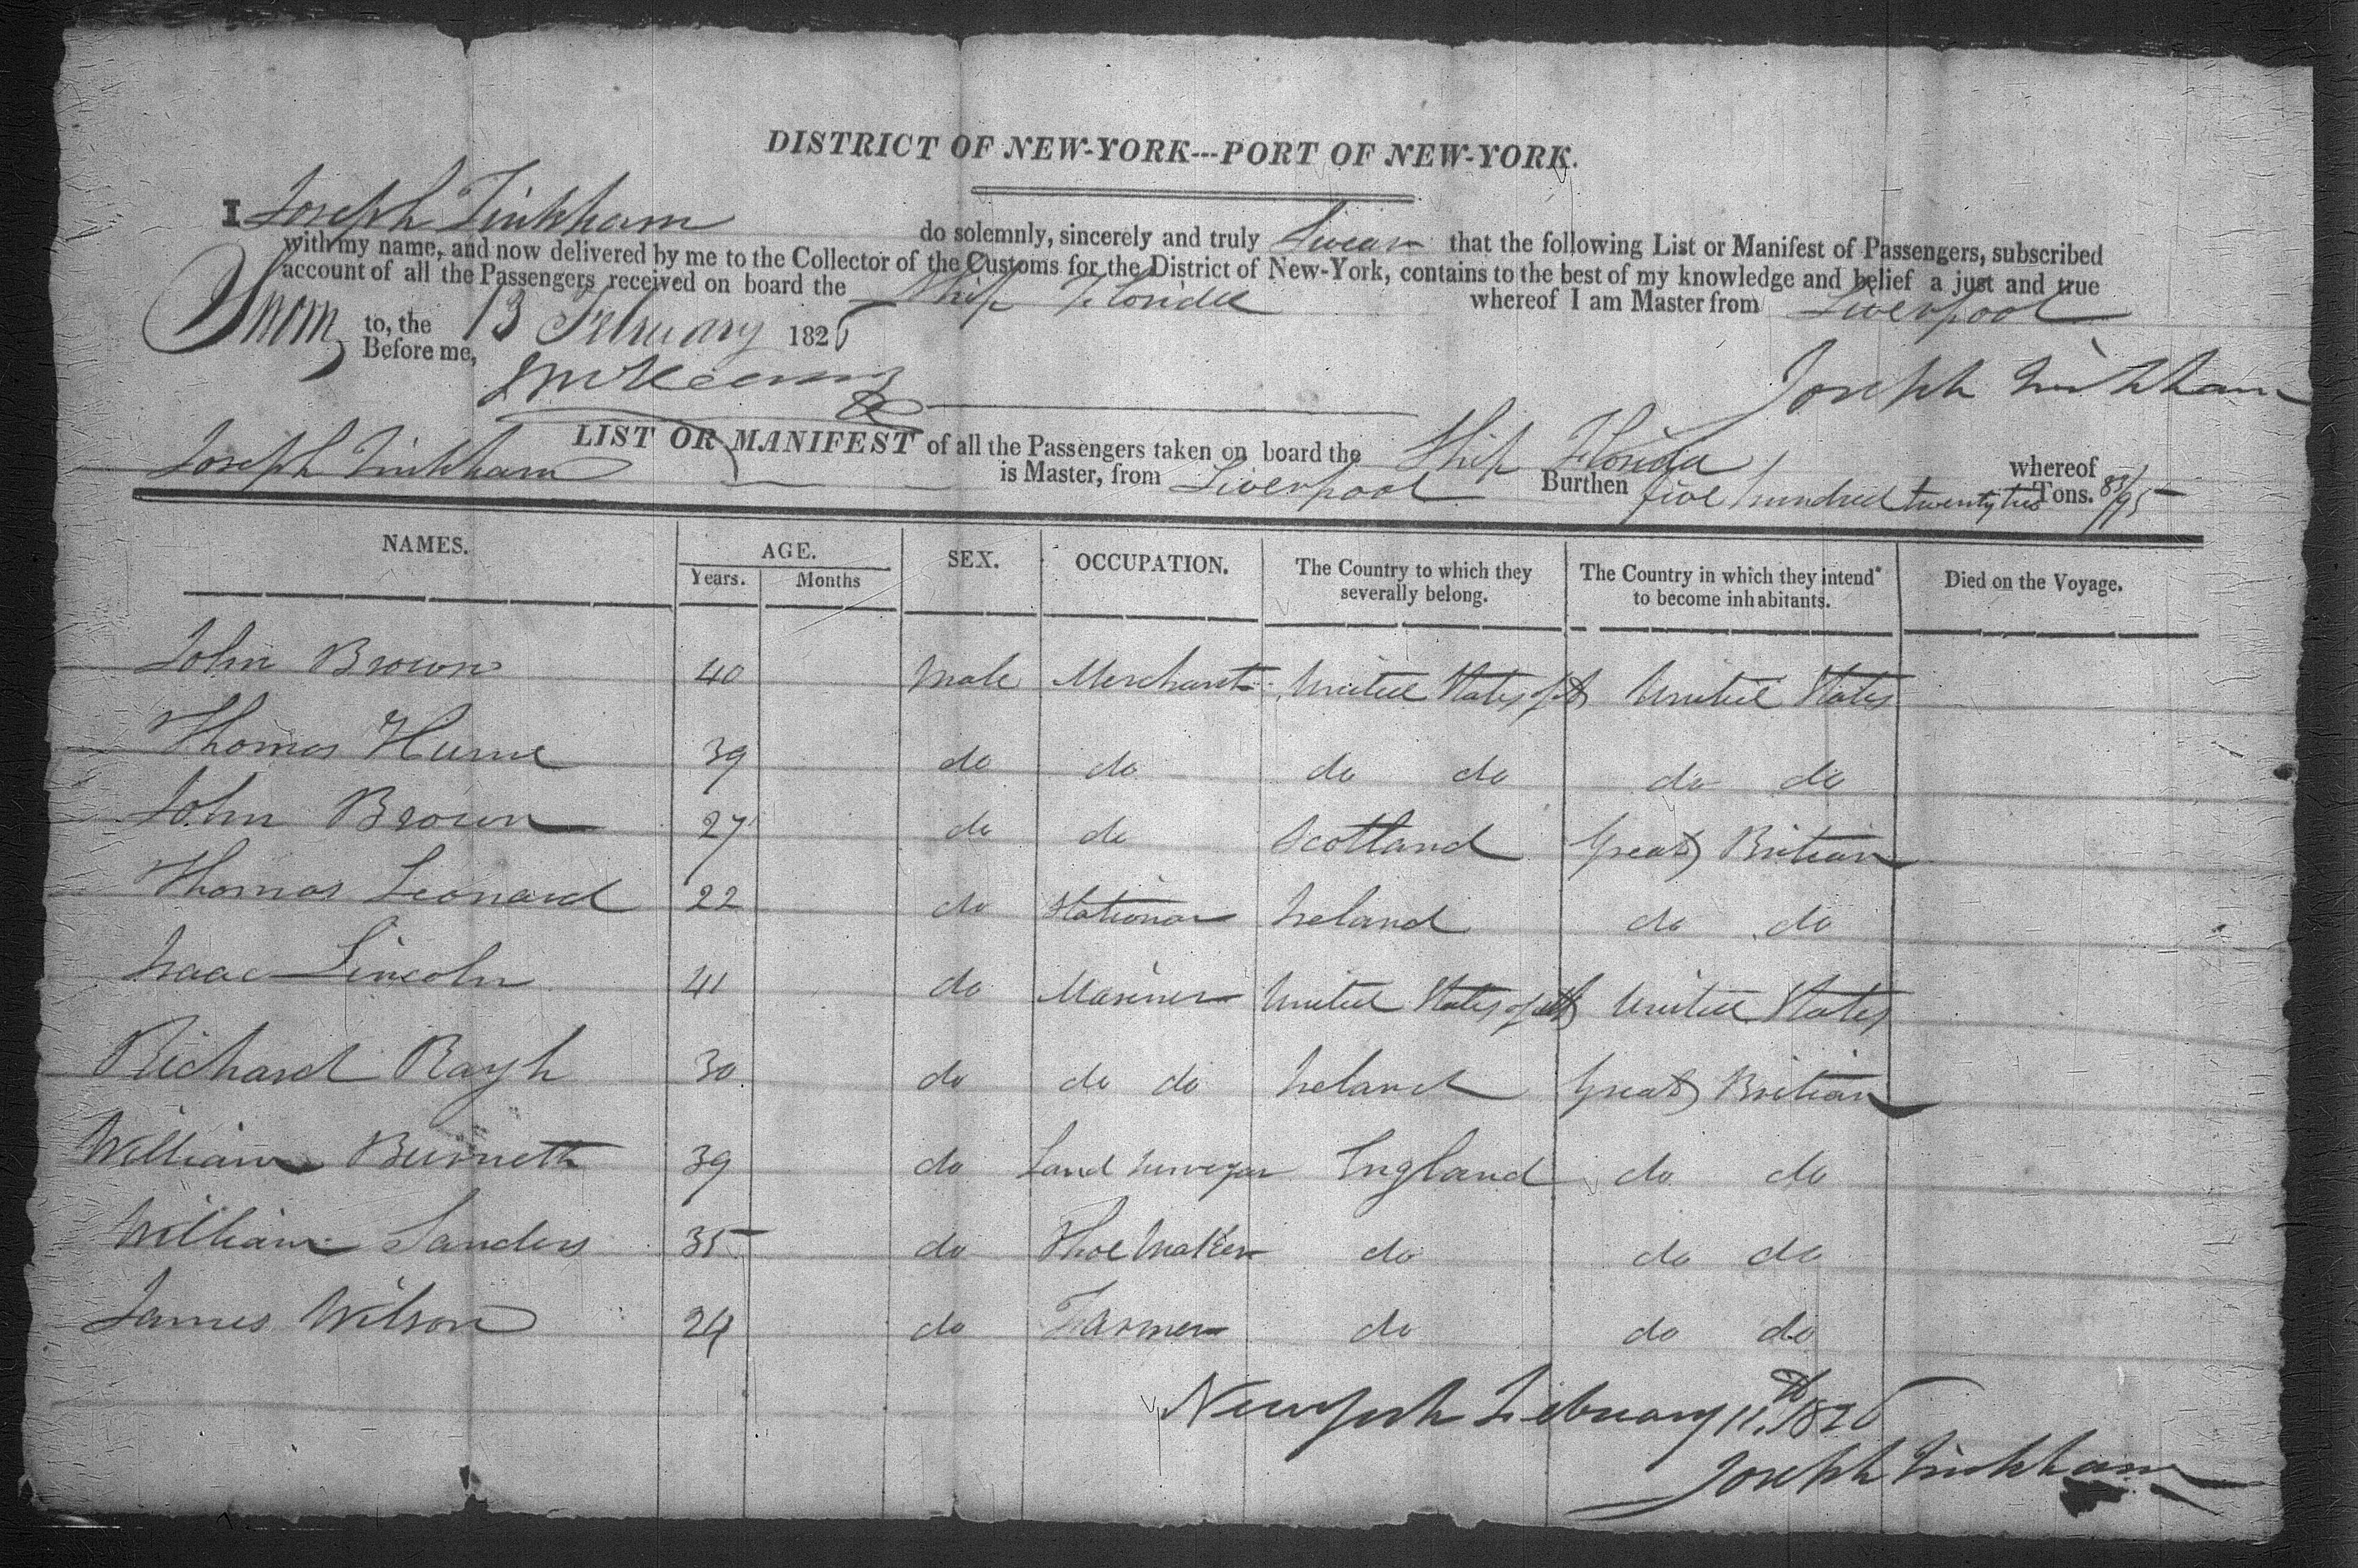 DISTRICT OF NEW-YORK---PORT OF NEW-YORK.
I Joseph Tinkham do solemnly, sincerely and truly Swear that the following List or Manifest of Passengers, subscribed
with my name, and now delivered by me to the Collector of the Customs for the District of New-York, contains to the best of my knowledge and belief a just and true
account of all the Passengers received on board the Ship Florida whereof I am Master from Liverpool
Sworn to, the 13 February 182
Before me,
Joseph Tinkham
LIST OR MANIFEST of all the Passengers taken on board the Ship Florida whereof
Joseph Tinkham is Master, from Liverpool Burthen five hundred twenty two Tons. 83/95
NAMES. AGE. SEX. OCCUPATION. The Country to which they severally belong. The Country in which they intend to become inhabitants. Died on the Voyage.
Years. Months
John Brown 40 Male Merchant United States of A United States
Thomas Hume 39 do do do do do do
John Brown 27 do do Scotland Great Britian
Thomas Leonard 22 do Stationar Ireland do do
Isaac Lincoln 41 do Mariner United States of A United States
Richard Rayh 30 do do do Ireland Great Britian
William Burnett 39 do Land Surveyor England do do
William Sanders 35 do Shoe Maker do do do
James Wilson 24 do Farmer do do do
New York February 11th 182
Joseph Tinkham